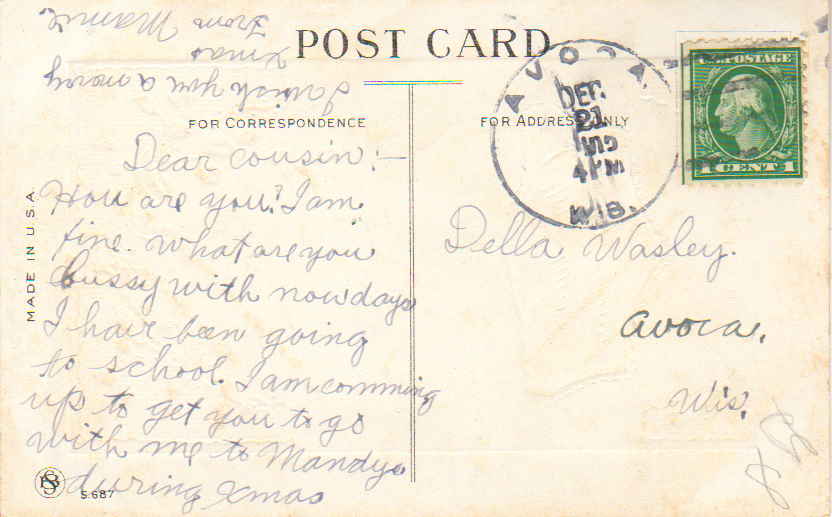 POST CARD
FOR CORRESPONDENCE
FOR ADDRESS ONLY
Dear cousin:—
How are you? I am
fine. What are you
bussy with nowdays
I have been going
to school. I am comming
up to get you to go
with me to Mandys
during Xmas
I wish you a merry
Xmas
From Mamie
Della Wasley.
Avoca.
Wis.
AVOCA
DEC
21
4 PM
WIS.
U.S. POSTAGE
1 CENT 1
MADE IN U.S.A.
S. 687